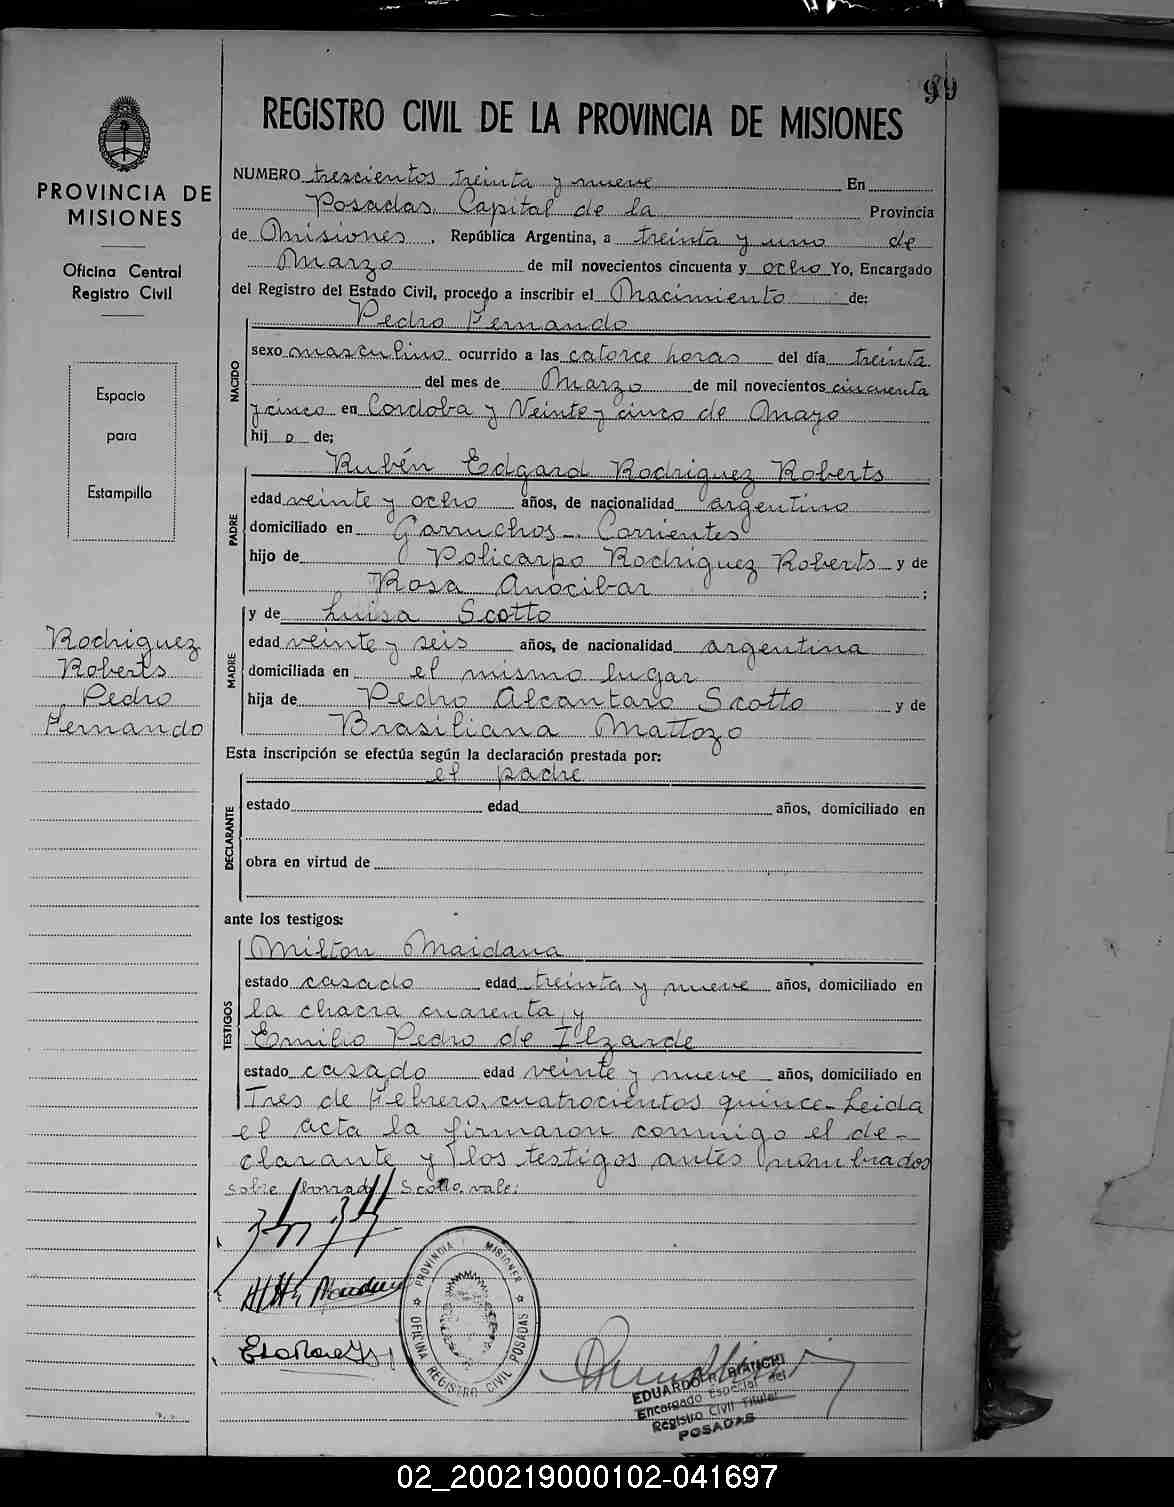 99
REGISTRO CIVIL DE LA PROVINCIA DE MISIONES
PROVINCIA DE
MISIONES
Oficina Central
Registro Civil
Espacio
para
Estampilla
Rodriguez
Roberts
Pedro
Fernando
NUMERO trescientos treinta y nueve En
Posadas, Capital de la Provincia
de Misiones, República Argentina, a treinta y uno de
Marzo de mil novecientos cincuenta y ocho Yo, Encargado
del Registro del Estado Civil, procedo a inscribir el Nacimiento de:
NACIDO
Pedro Fernando
sexo masculino ocurrido a las catorce horas del día treinta
del mes de Marzo de mil novecientos cincuenta
y cinco en Cordoba y Veinte y cinco de Mayo
hij o de;
PADRE
Rubén Edgard Rodriguez Roberts
edad veinte y ocho años, de nacionalidad argentino
domiciliado en Garruchos - Corrientes
hijo de Policarpo Rodriguez Roberts y de
Rosa Anocibar ;
MADRE
y de Luisa Scotto
edad veinte y seis años, de nacionalidad argentina
domiciliada en el mismo lugar
hija de Pedro Alcantaro Scotto y de
Brasiliana Mattozo
Esta inscripción se efectúa según la declaración prestada por:
DECLARANTE
el padre
estado edad años, domiciliado en
obra en virtud de
ante los testigos:
TESTIGOS
Milton Maidana
estado casado edad treinta y nueve años, domiciliado en
la chacra cuarenta y
Emilio Pedro de Elzarde
estado casado edad veinte y nueve años, domiciliado en
Tres de Febrero, cuatrocientos quince - Leida
el acta la firmaron conmigo el de-
clarante y los testigos antes nombrados
sobre borrado Scotto vale:
PROVINCIA MISIONES
OFICINA REGISTRO CIVIL POSADAS
EDUARDO R. BIANCHI
Encargado Especial del
Registro Civil Titular
POSADAS
02_200219000102-041697